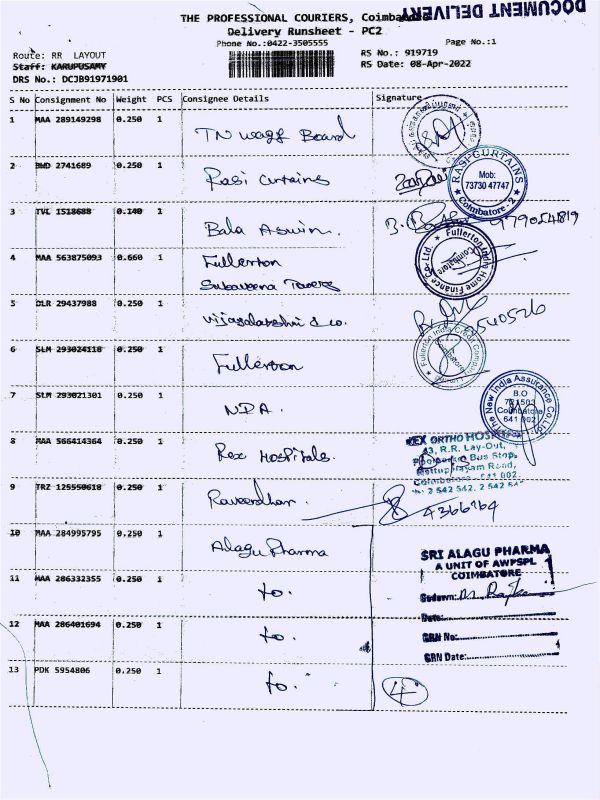 DOCUMENT DELIVERY
THE PROFESSIONAL COURIERS, Coimbatore
Delivery Runsheet - PC2
Phone No.:0422-3505555
Page No.:1
Route: RR LAYOUT
RS No.: 919719
Staff: KARUPUSAMY
RS Date: 08-Apr-2022
DRS No.: DCJB91971901
S No Consignment No Weight PCS Consignee Details Signature
1 MAA 289149298 0.250 1 TN waqf Board
2 BWD 2741689 0.250 1 Rasi Curtains
RASI CURTAINS
Mob:
73730 47747
Coimbatore - 2
3 TVL 1518688 0.140 1 Bala Aswin.
4 MAA 563875093 0.660 1 Fullerton
Subaveena Towers
Fullerton India Home Finance Co. Ltd.
Coimbatore
5 DLR 29437988 0.250 1 Vijayalakshmi & co.
540526
6 SLM 293024118 0.250 1 Fullerton
Fullerton India Credit Company Limited
Coimbatore
7 SLM 293021301 0.250 1 NDA.
The New India Assurance Co. Ltd.
B.O
721503
Coimbatore
641 002
8 MAA 566414364 0.250 1 Rex Hospitals.
REX ORTHO HOSPITAL
43, R.R. Lay-Out,
Bus Stop,
Mettupalayam Road,
Coimbatore - 641 002.
2 542 542, 2 542 54
9 TRZ 125550618 0.250 1 Raveedhar.
4366764
10 MAA 284995795 0.250 1 Alagu Pharma
SRI ALAGU PHARMA
A UNIT OF AWPSPL
COIMBATORE
11 MAA 286332355 0.250 1 to.
Godown:
Date:
12 MAA 286401694 0.250 1 to.
GRN No:
GRN Date:
13 PDK 5954806 0.250 1 to.
4